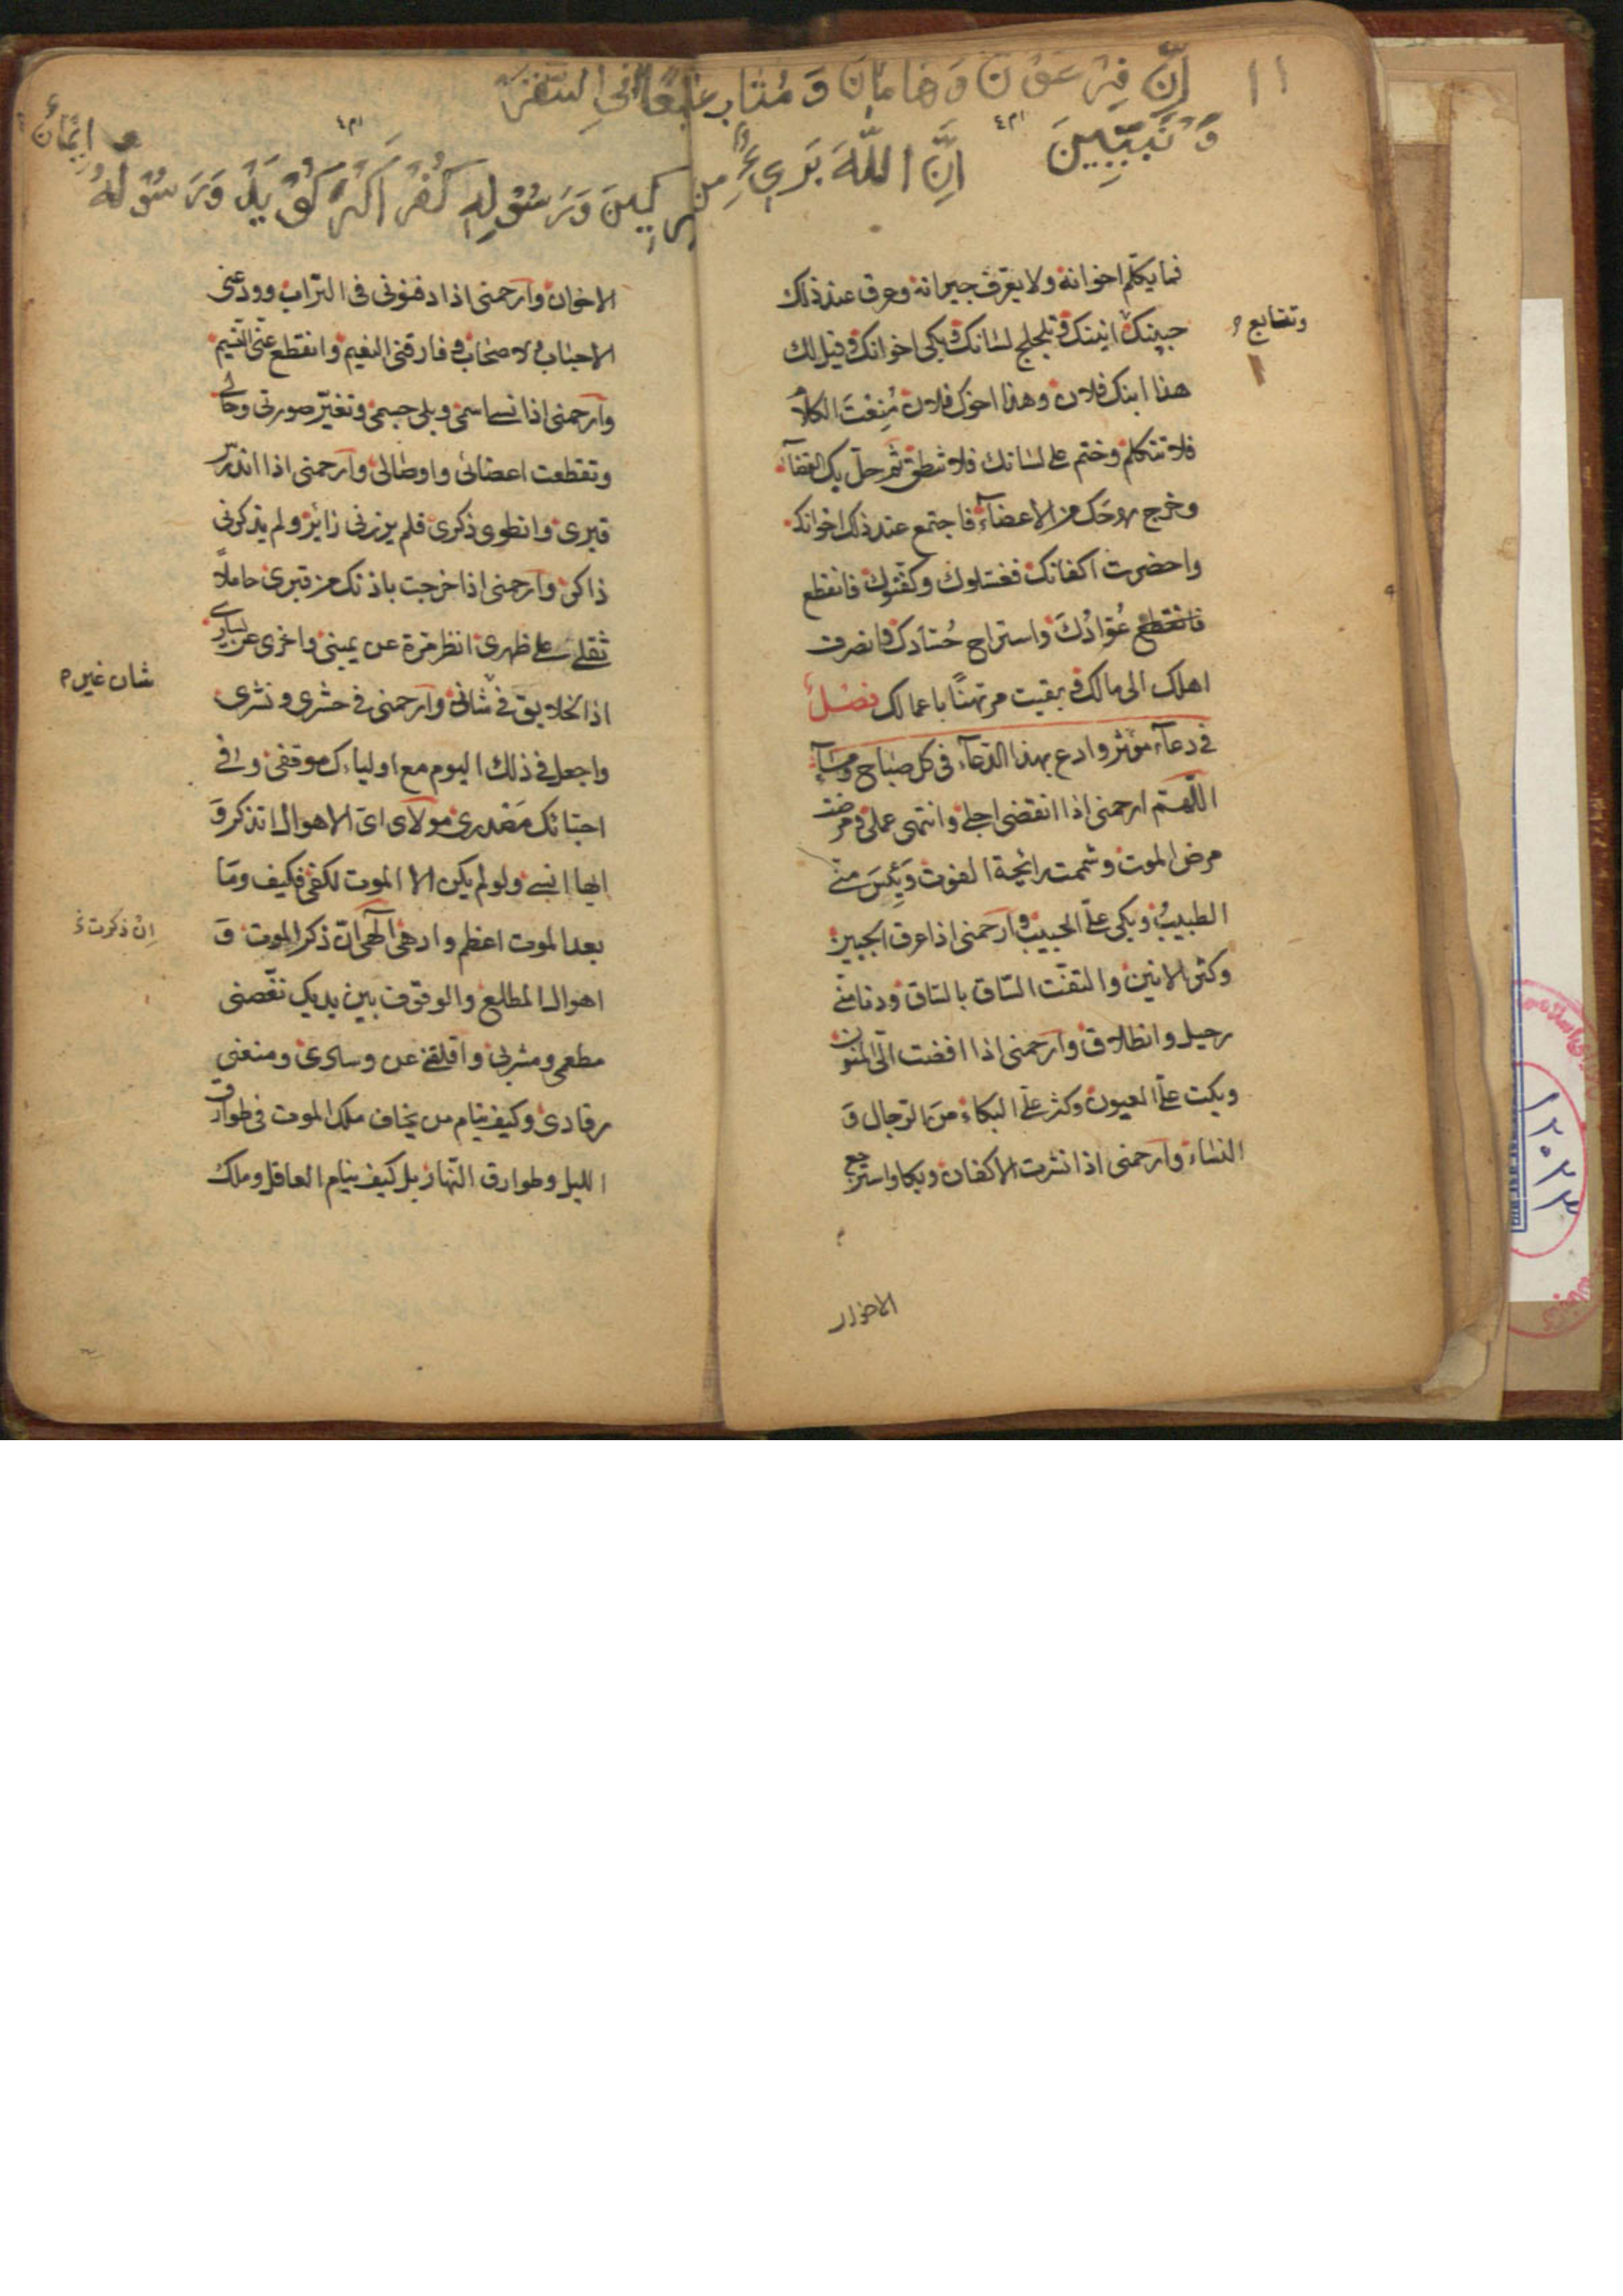 ١١
اِنَّ فِرْعَوْنَ وَهَامَانَ وَ فِي السَّفَرِ
اِنَّ اللّٰهَ بَرِيءٌ مِنَ وَرَسُوْلِهِ كُفْرْ وَرَسُوْلُهُ
فما يكلم اخوانه ولا يعرف جيرانه وعرق عند ذلك
وتتابع
جبينك انينك وتلجلج لسانك وبكى اخوانك وقيل لك
هذا ابنك فلان وهذا اخوك فلان مُنِعْتَ الكلام
فلا تتكلم وختم على لسانك فلا تنطق ثم حل بك القضآء
وخرج روحك من الاعضآء فاجتمع عند ذلك اخوانك
واحضرت اكفانك فغسلوك وكفّنوك فانقطع
فانقطع عُوّادُكَ واستراح حُسّادك فانصرف
اهلك الى مالك وبقيت مرتهنًا باعمالك فصل
في دعآء مؤثر وادع بهذا الدعآء في كل صباح ومسآء
اللّهم ارحمني اذا انقضى اجلي وانتهى عملي ومرضت
مرض الموت وشممت رائحة الفوت وَيَئِسَ منّي
الطبيبُ وبكى علىّ الحبيب وارحمني اذا عرق الجبين
وكثر الانين والتفّت الساق بالساق ودنا منّي
رحيل وانطلاق وارحمني اذا افضت الىّ المنون
وبكت علىّ العيون وكثر علىّ البكاء من الرجال وَ
النساء وارحمني اذا نشرت الاكفان وبكا واسترجع
الاخوان وارحمني اذا دفنوني في التراب وودعني
الاحباب والاصحاب وفارقني النعيم وانقطع عنّي النسيم
وارحمني اذا نسي اسمي وبلى جسمي وتغيّر صورتي وحالي
وتقطعت اعضائي واوصالي وارحمني اذا اندرس
قبري وانطوى ذكري فلم يزرني زائر ولم يذكرني
ذاكر وارحمني اذا خرجت باذنك من قبري حاملاً
ثقلي على ظهري انظر مرة عن يميني واخرى عن يساري
شان غير
اذ الخلايق في شاني وارحمني في حشري ونشري
واجعل في ذلك اليوم مع اوليائك موقفي وفي
احبّائك مَصْدري مولاى اىّ الاهوال اتذكر وَ
ايها انسى ولو لم يكن الا الموت لكفى فكيف ومَا
اِنْ ذكرت
بعد الموت اعظم وادهى الهى انّ ذكر الموت وَ
اهوال المطلع والوقوف بين يديك نغّصني
مطعمي ومشربي واقلقني عن وسادي ومنعني
رقادي وكيف ينام من يخاف ملك الموت في طوارق
الليل وطوارق النهار بل كيف ينام العاقل وملك
١٢٠٢٣